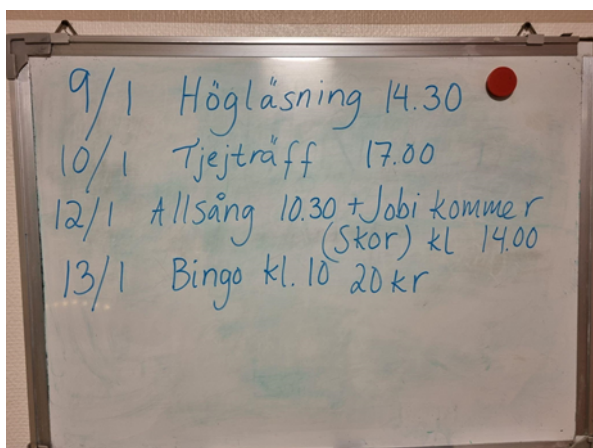 9/1 Högläsning 14.30
10/1 Tjejträff 17.00
12/1 Allsång 10.30 + Jobi kommer
(Skor) kl 14.00
13/1 Bingo kl. 10 20 kr